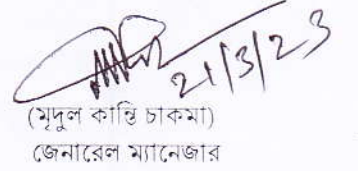 21/3/23
(মৃদুল কান্তি চাকমা)
জেনারেল ম্যানেজার